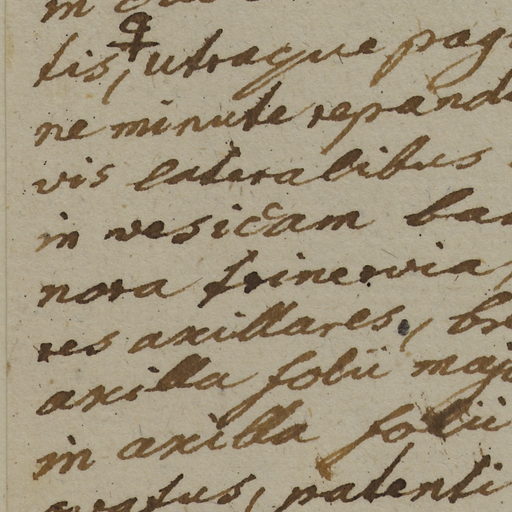 in
tis, utraque pag
ne minute repand
vis lateralibus
in vesicam ba
nora trinervia,
res axillares, br
axilla folii maj
in axilla folii
vatus, patenti